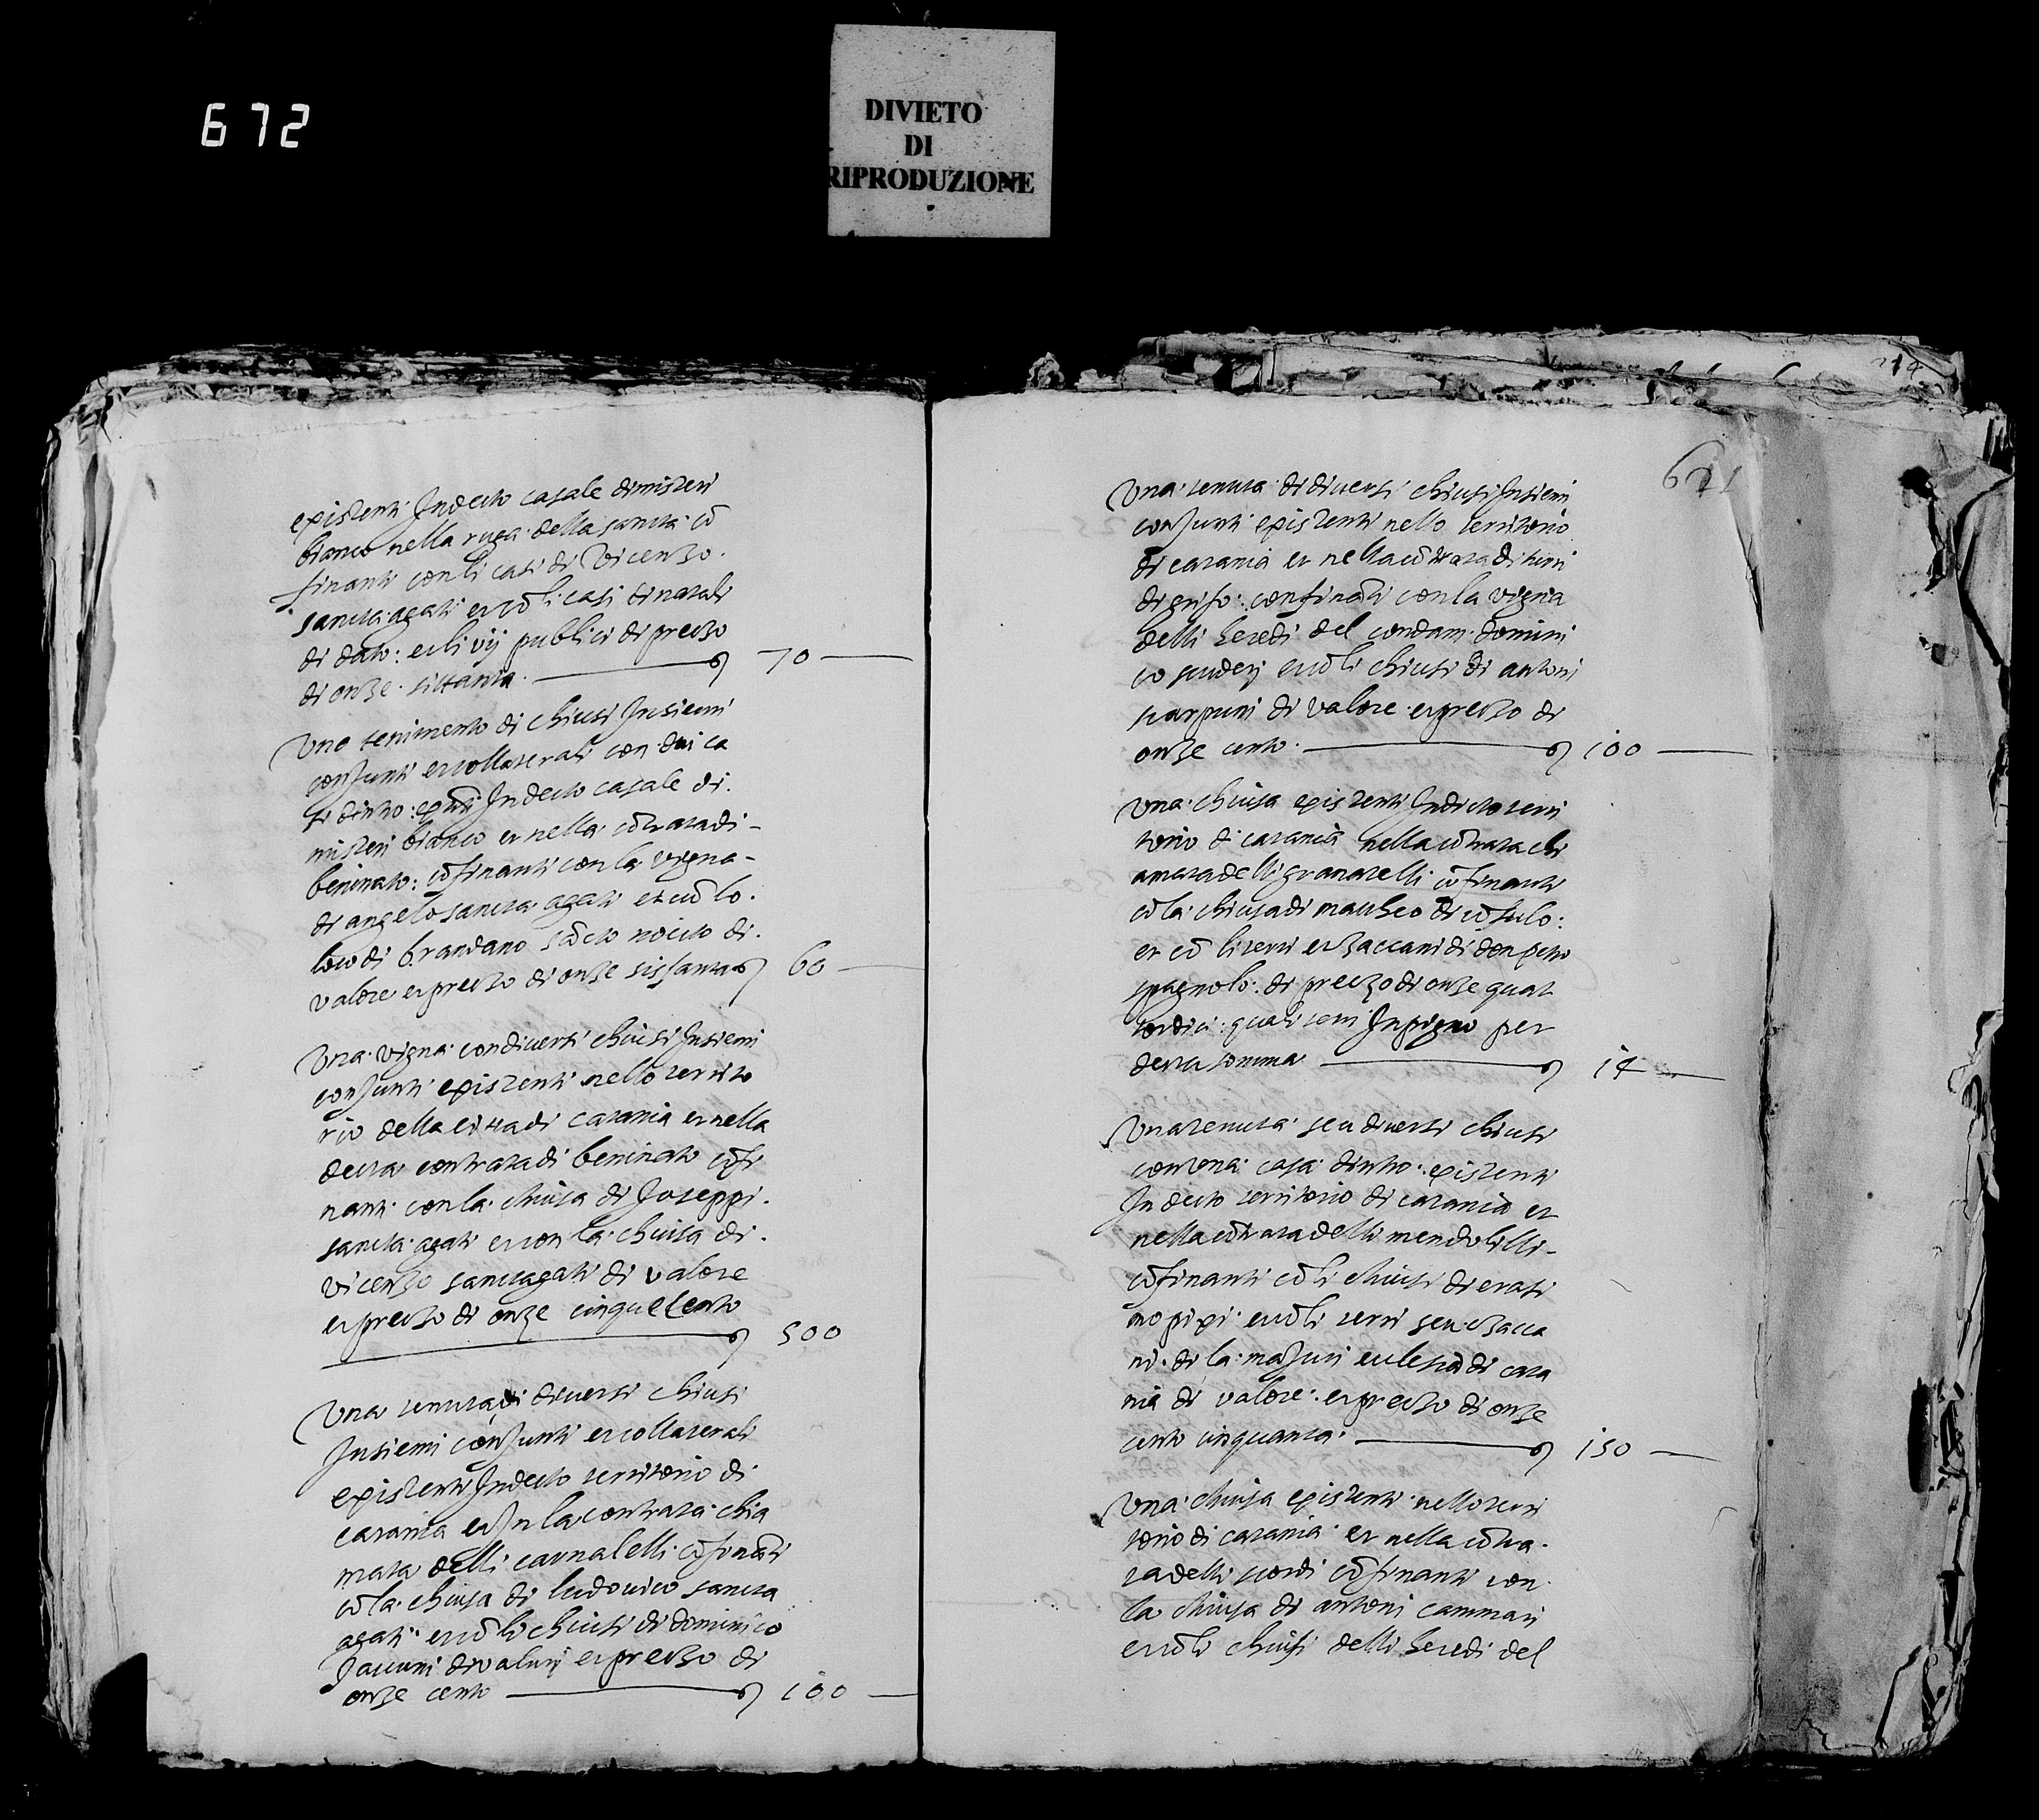 672
DIVIETO
DI
RIPRODUZIONE
existenti Indecto casale di misteri
bianco nella ruga della sancta cō
finanti con li casi di Vicenzo
sancta agati et cō li casi di natali
di dato: et li vij publici di preczo
di onze sittanta 70
Uno tenimento di chiusi Insiemi
conjunti et collaterali con dui ca
si dintro: Indecto casale di
misteri bianco et nella cōtrata di
beninato: cōfinanti con la vigna
di angelo sancta agati et cū lo
loco di brandano di
valore et preczo di onze sissanta 60
Una vigna con diversi chiusi Insiemi
conjunti existenti nello territo
rio della citta di catania et nella
decta contrata di beninato cōfi
nanti con la chiusa di Joseppi
sancta agati et con la chiusa di
vicenzo sanctagati di valore
et preczo di onze cinquecento
500
Una tenuta di diversi chiusi
Insiemi conjunti et collaterali
existenti Indecto territorio di
catania et In la contrata chia
mata delli carnalelli cōfināti
cō la chiusa di ludovico sancta
agati et cō li chiusi di dominico
di valuri et preczo di
onze cento 100
214
671
Una tenuta di diversi chiusi Insiemi
conjunti existenti nello territorio
di catania et nella cōtrata di
di grifo: confināti con la vigna
delli heredi del condam domini
co et cō li chiusi di antoni
scarpuni di valore et preczo di
onze cento 100
Una chiusa existenti Indicto terri
torio di catania nella cōtrata chi
amata delli granatelli cōfinanti
cō la chiusa di matheo di
et cō li terri et zaccani di don petro
spagnolo: di preczo di onze quat
tordici: quali teni Inpigno per
decta somma 14
Una tenuta seu diversi chiusi
con una casa dintro: existenti
Indecto territorio di catania et
nella cōtrata delli mendolilli
cōfinanti cō li chiusi di erasi
mo pixi et cō li terri seu zacca
ni di la majuri ecclesia di cata
nia di valore: et preczo di onze
cento cinquanta 150
Una chiusa existenti nello terri
torio di catania et nella cōtra
ta delli cōfinanti con
la chiusa di antoni cammari
et cō li chiusi delli heredi del